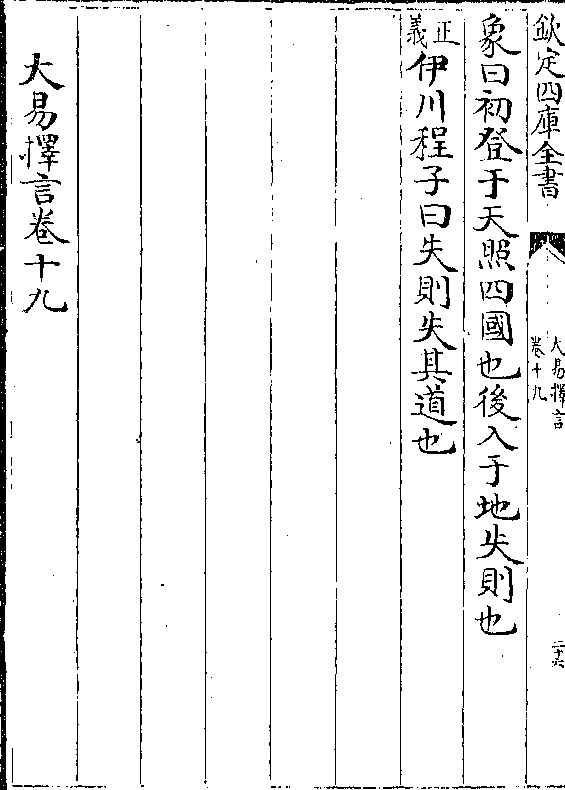 欽定四庫全書
大易擇言
卷十九
二十六
象曰初登于天照四國也後入于地失則也
正義
伊川程子曰失則失其道也
大易擇言卷十九